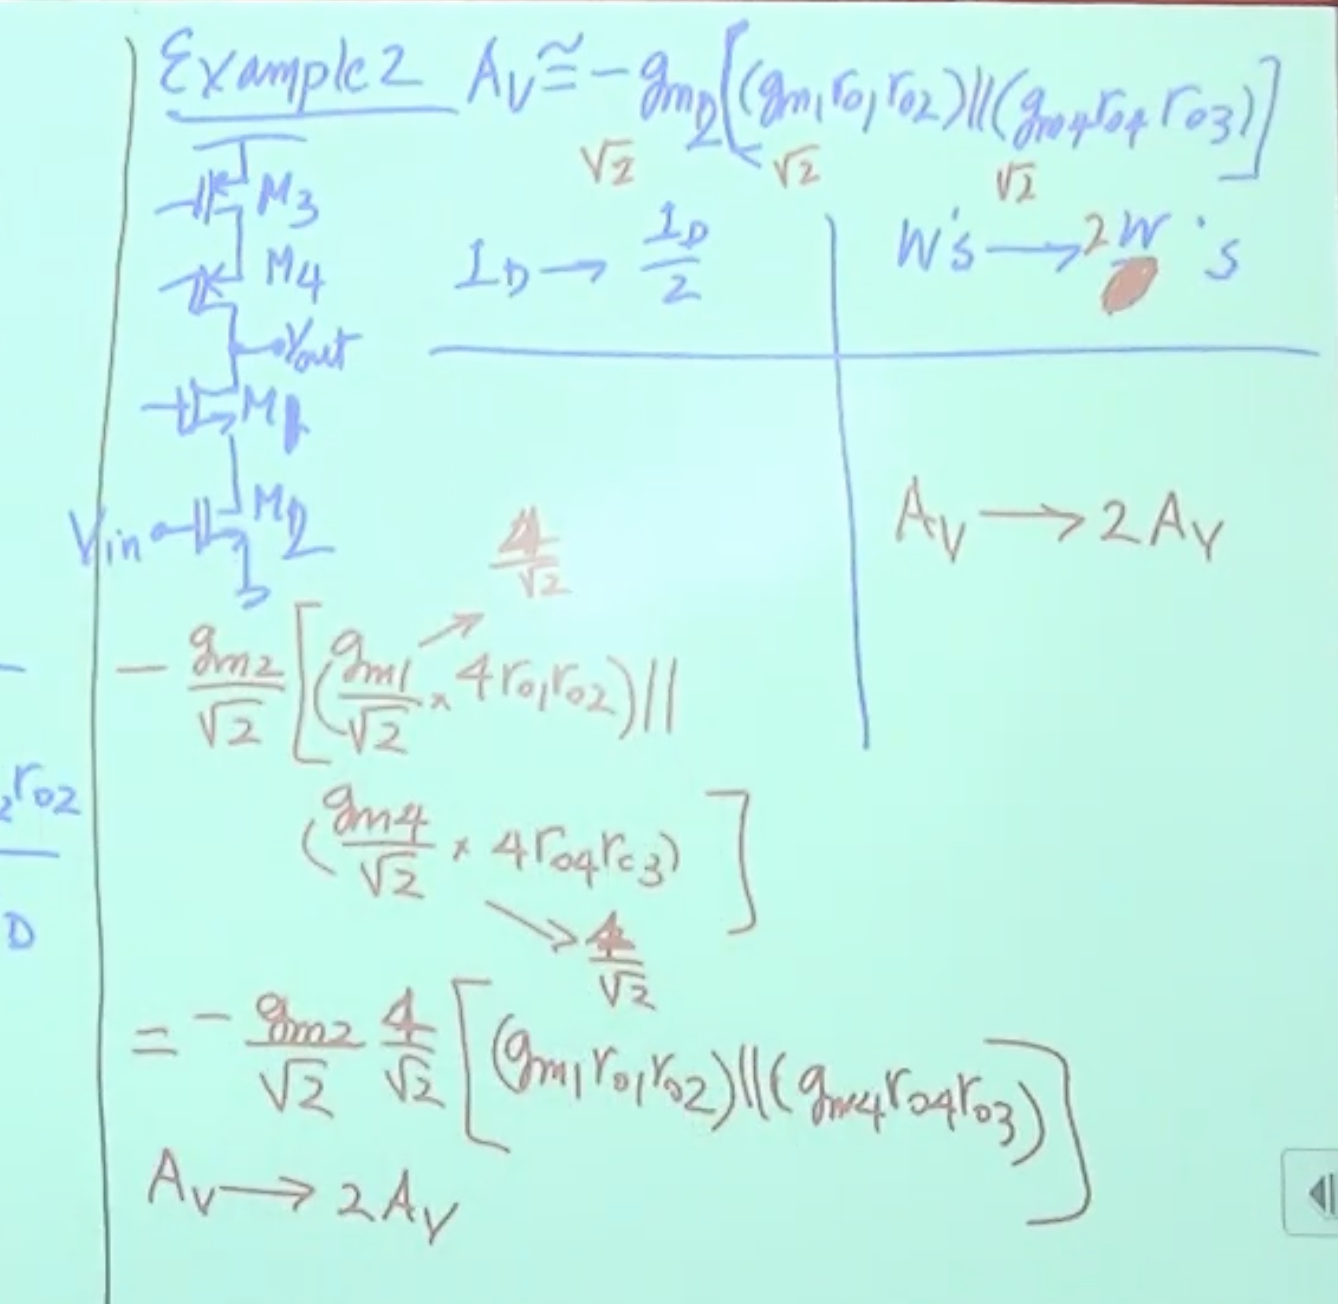 Example 2 Av ≅ -gm2[(gm1ro1ro2)||(gm4ro4ro3)]
√2 √2 √2
M3
M4
Vout
M1
M2
Vin
ID → ID/2
W's → 2W's
Av → 2Av
4/√2
- gm2/√2 [(gm1/√2 × 4ro1ro2)||
(gm4/√2 × 4ro4ro3)]
4/√2
= - gm2/√2 4/√2 [(gm1ro1ro2)||(gm4ro4ro3)]
Av → 2Av
2ro2
D